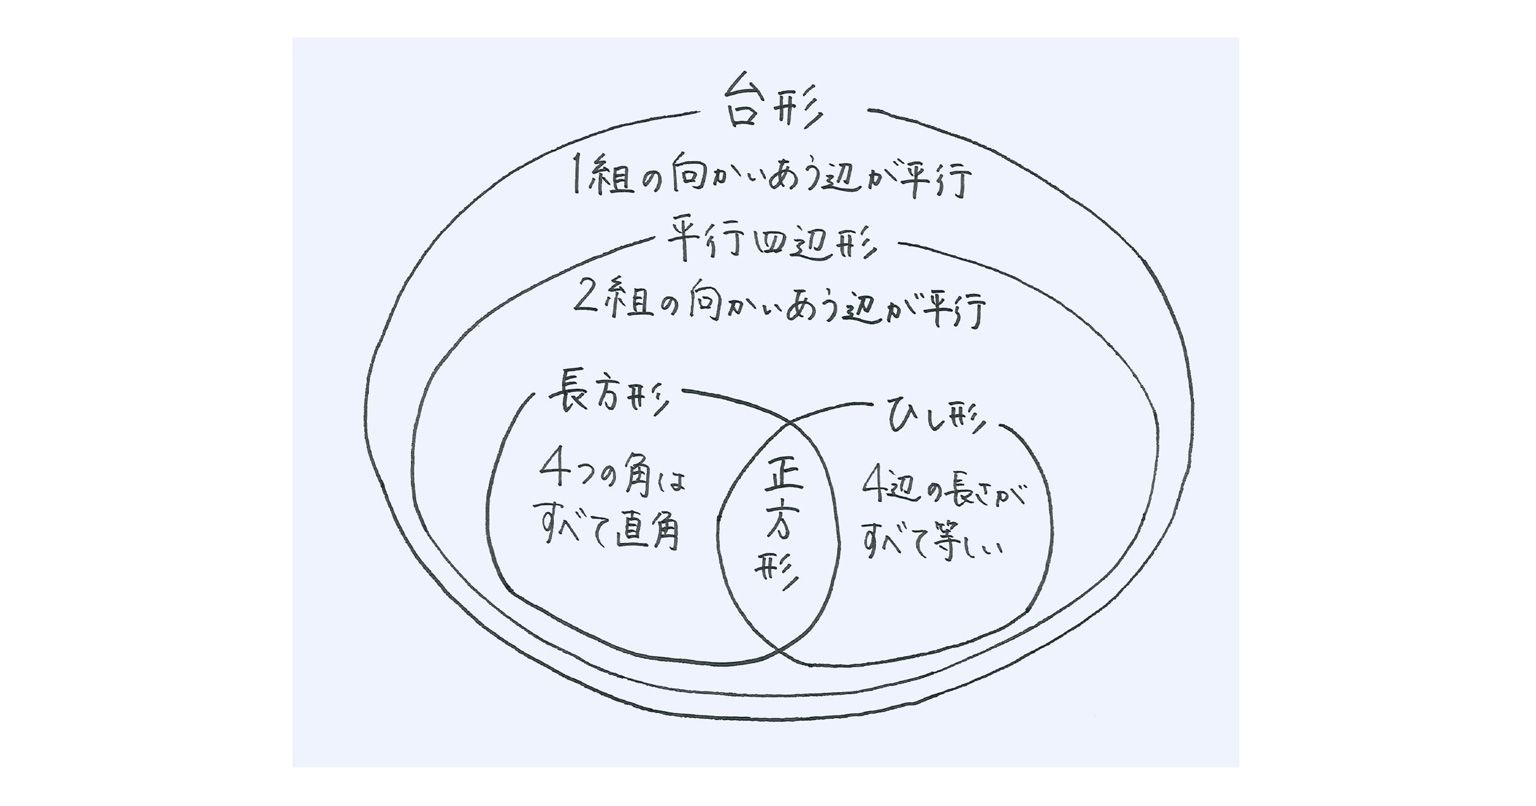 台形
1組の向かいあう辺が平行
平行四辺形
2組の向かいあう辺が平行
長方形
4つの角は
すべて直角
正方形
ひし形
4辺の長さが
すべて等しい